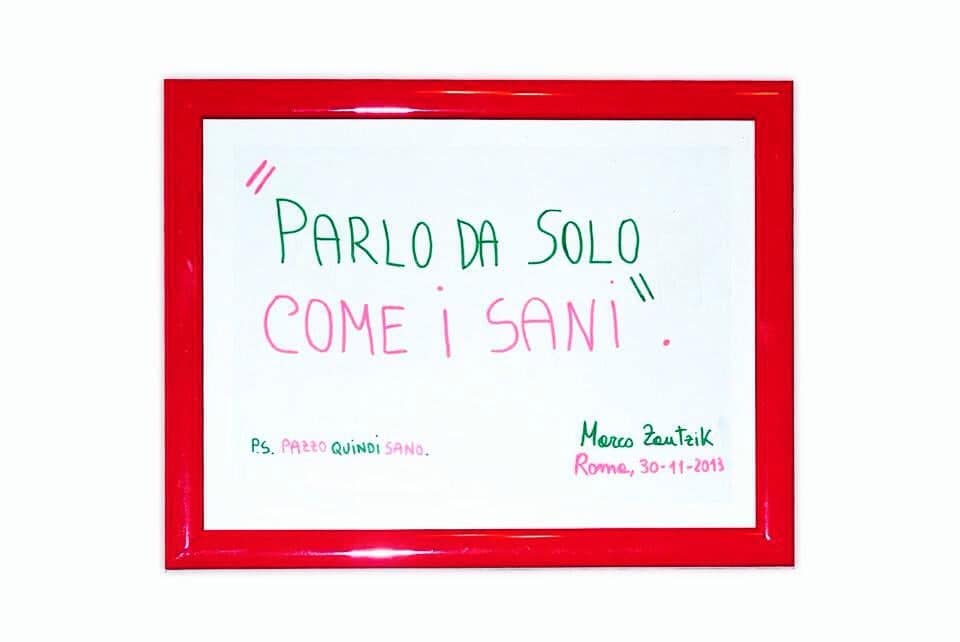 "PARLO DA SOLO
COME i SANi".
P.S. PAZZO QUiNDi SANO.
Marco Zautzik
Roma, 30-11-2013